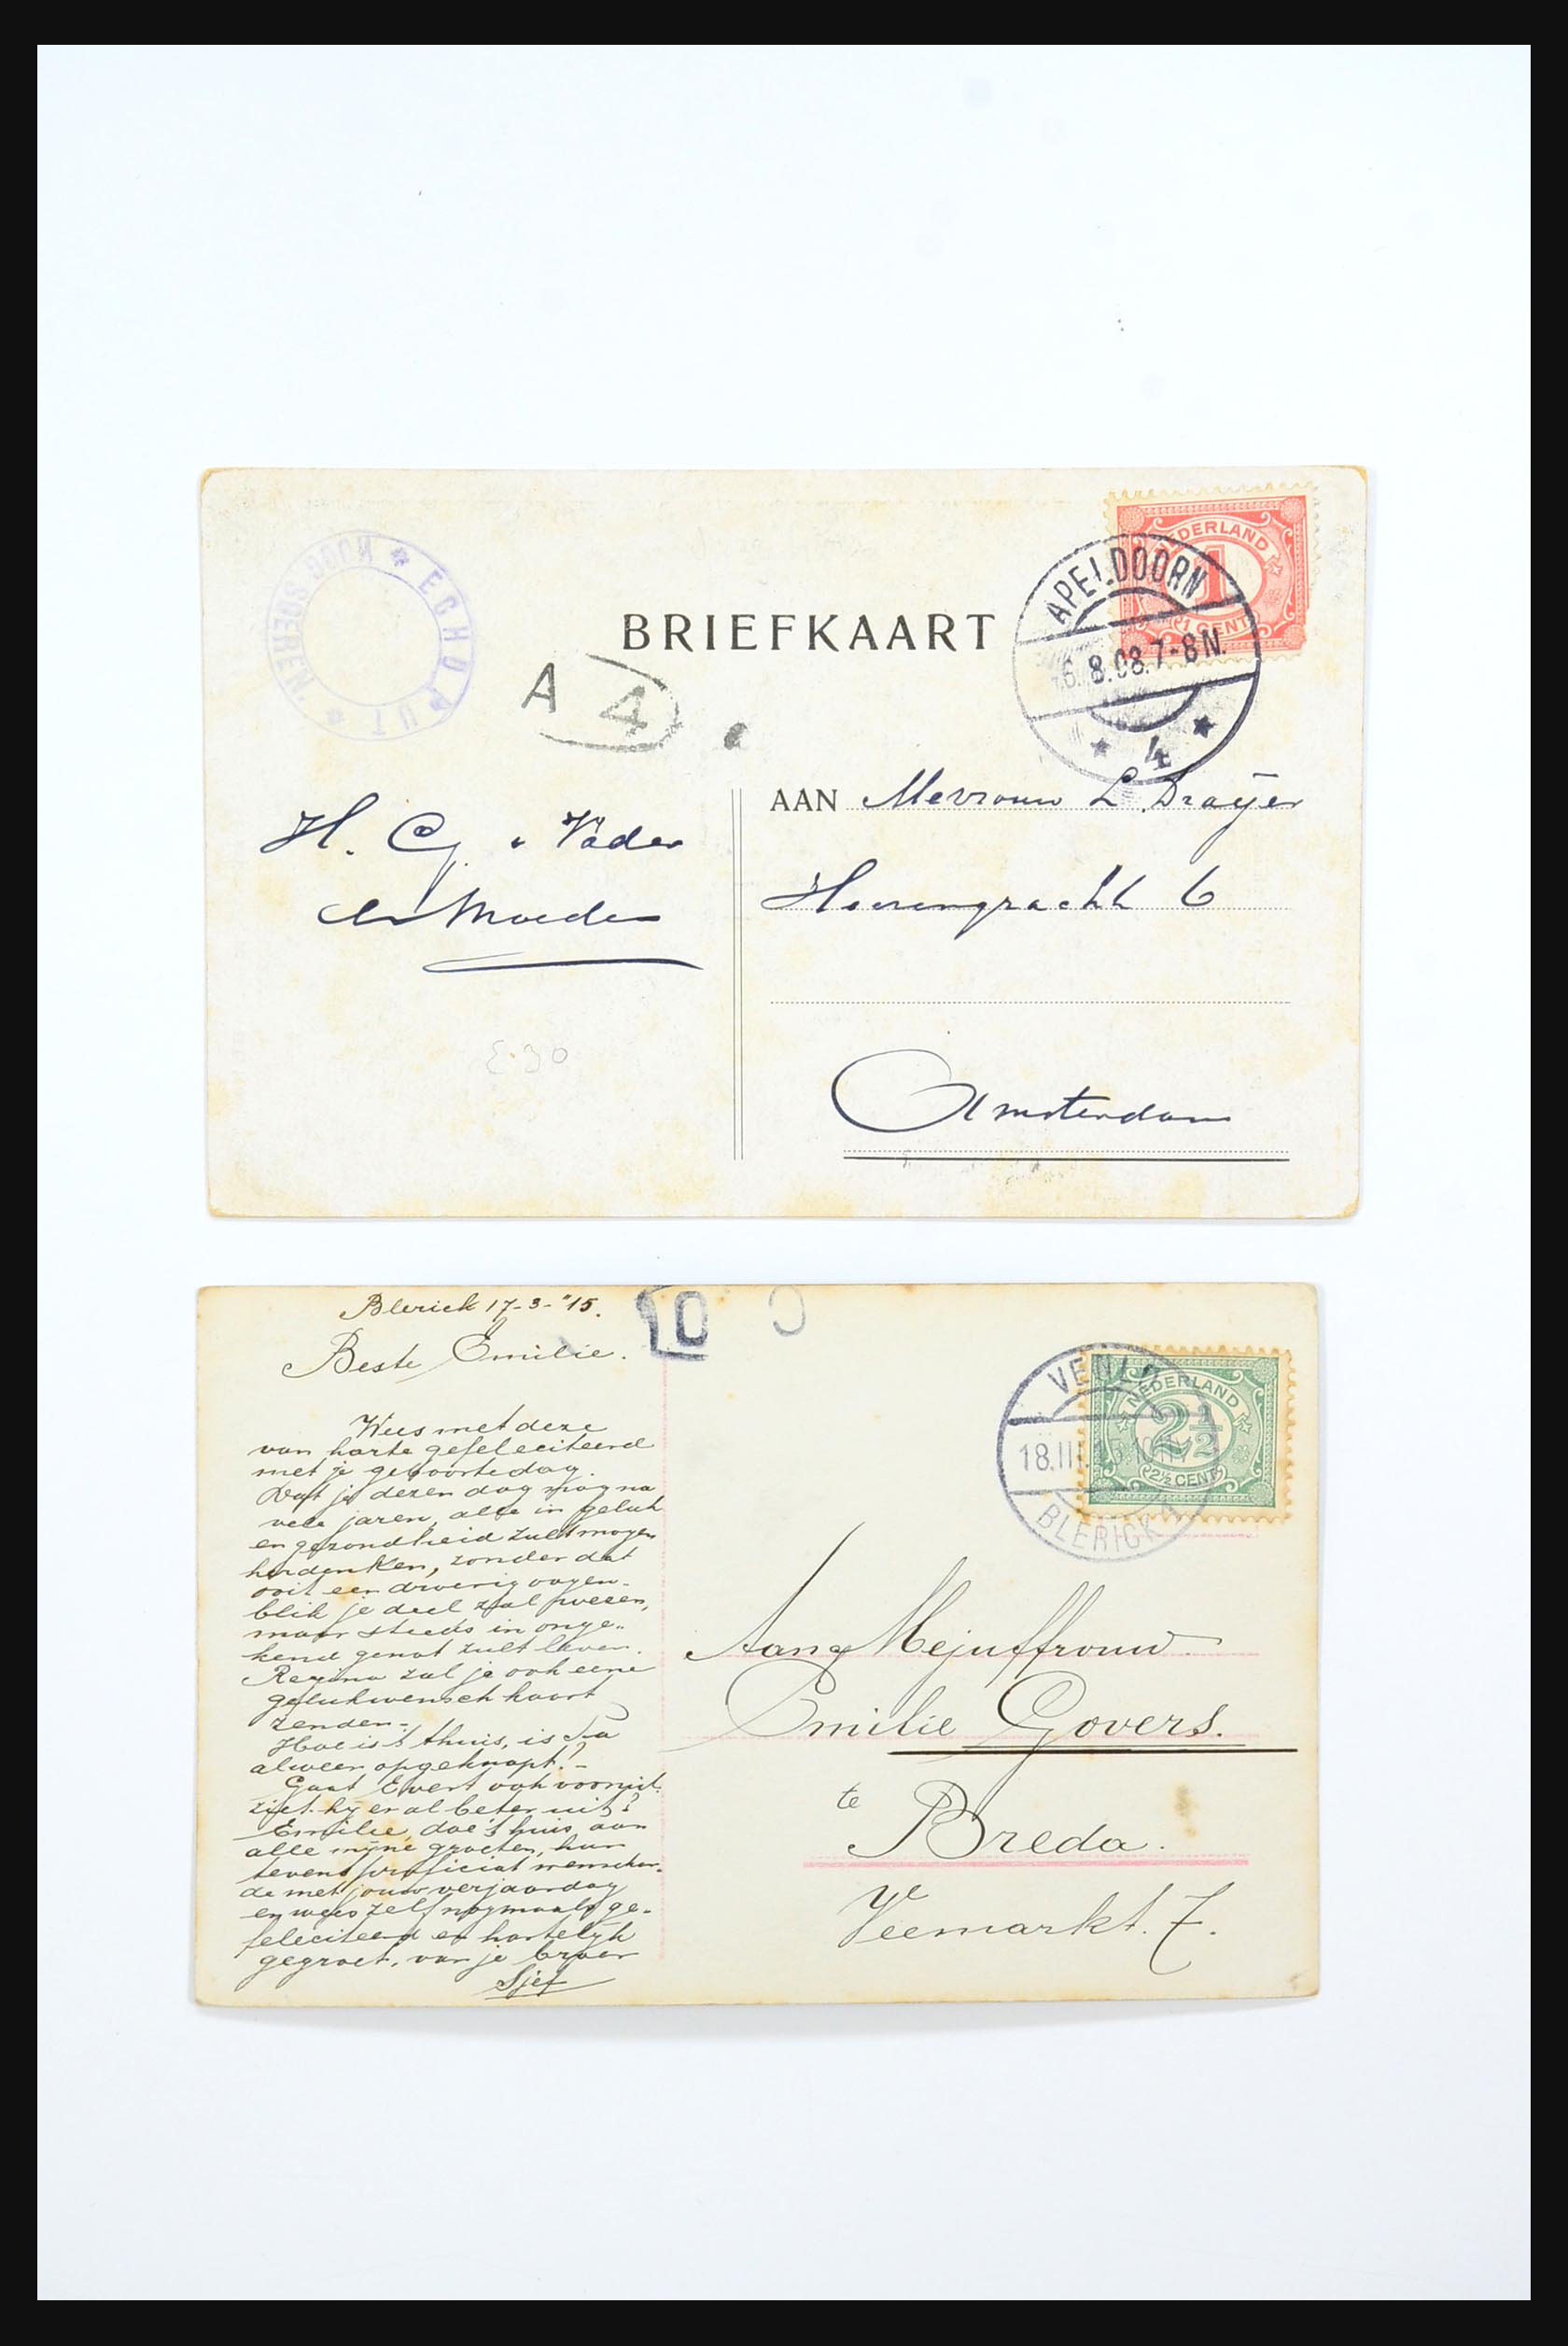 NEDERLAND
1
1 CENT
APELDOORN
6.8.08.7-8N.
4
BRIEFKAART
A 4
AAN Mevrouw L. Draijer
Heerengracht 6
Amsterdam
H. G. v Vader
en Moeder
E.30
Blerick 17-3-'15.
Beste Emilie.
Wees met deze
van harte gefeleciteerd
met je geboortedag.
Dat je dezen dag mog na
vele jaren, alle in geluk
en gezondheid zult mogen
herdenken, zonder dat
ooit een droevig oogen-
blik je deel zal wezen,
maar steeds in onge-
kend genot zult leven.
Regina zal je ook eene
gelukwensch kaart
zenden.-
Hoe is 't thuis, is Pa
alweer opgeknapt?-
Gaat Evert ook vooruit.
ziet hij er al beter uit?
Emilie, doe 't huis aan
alle mijne groeten, hun
tevens proficiat wenschen-
de met jouw verjaardag
en wees zelf nogmaals ge-
feleciteerd en hartelijk
gegroet, van je broer
Sjef
NEDERLAND
2 1/2
2½ CENT
VENLO
18.III.
BLERICK
Aan Mejuffrouw
Emilie Govers.
te
Breda.
Veemarkt. 7.